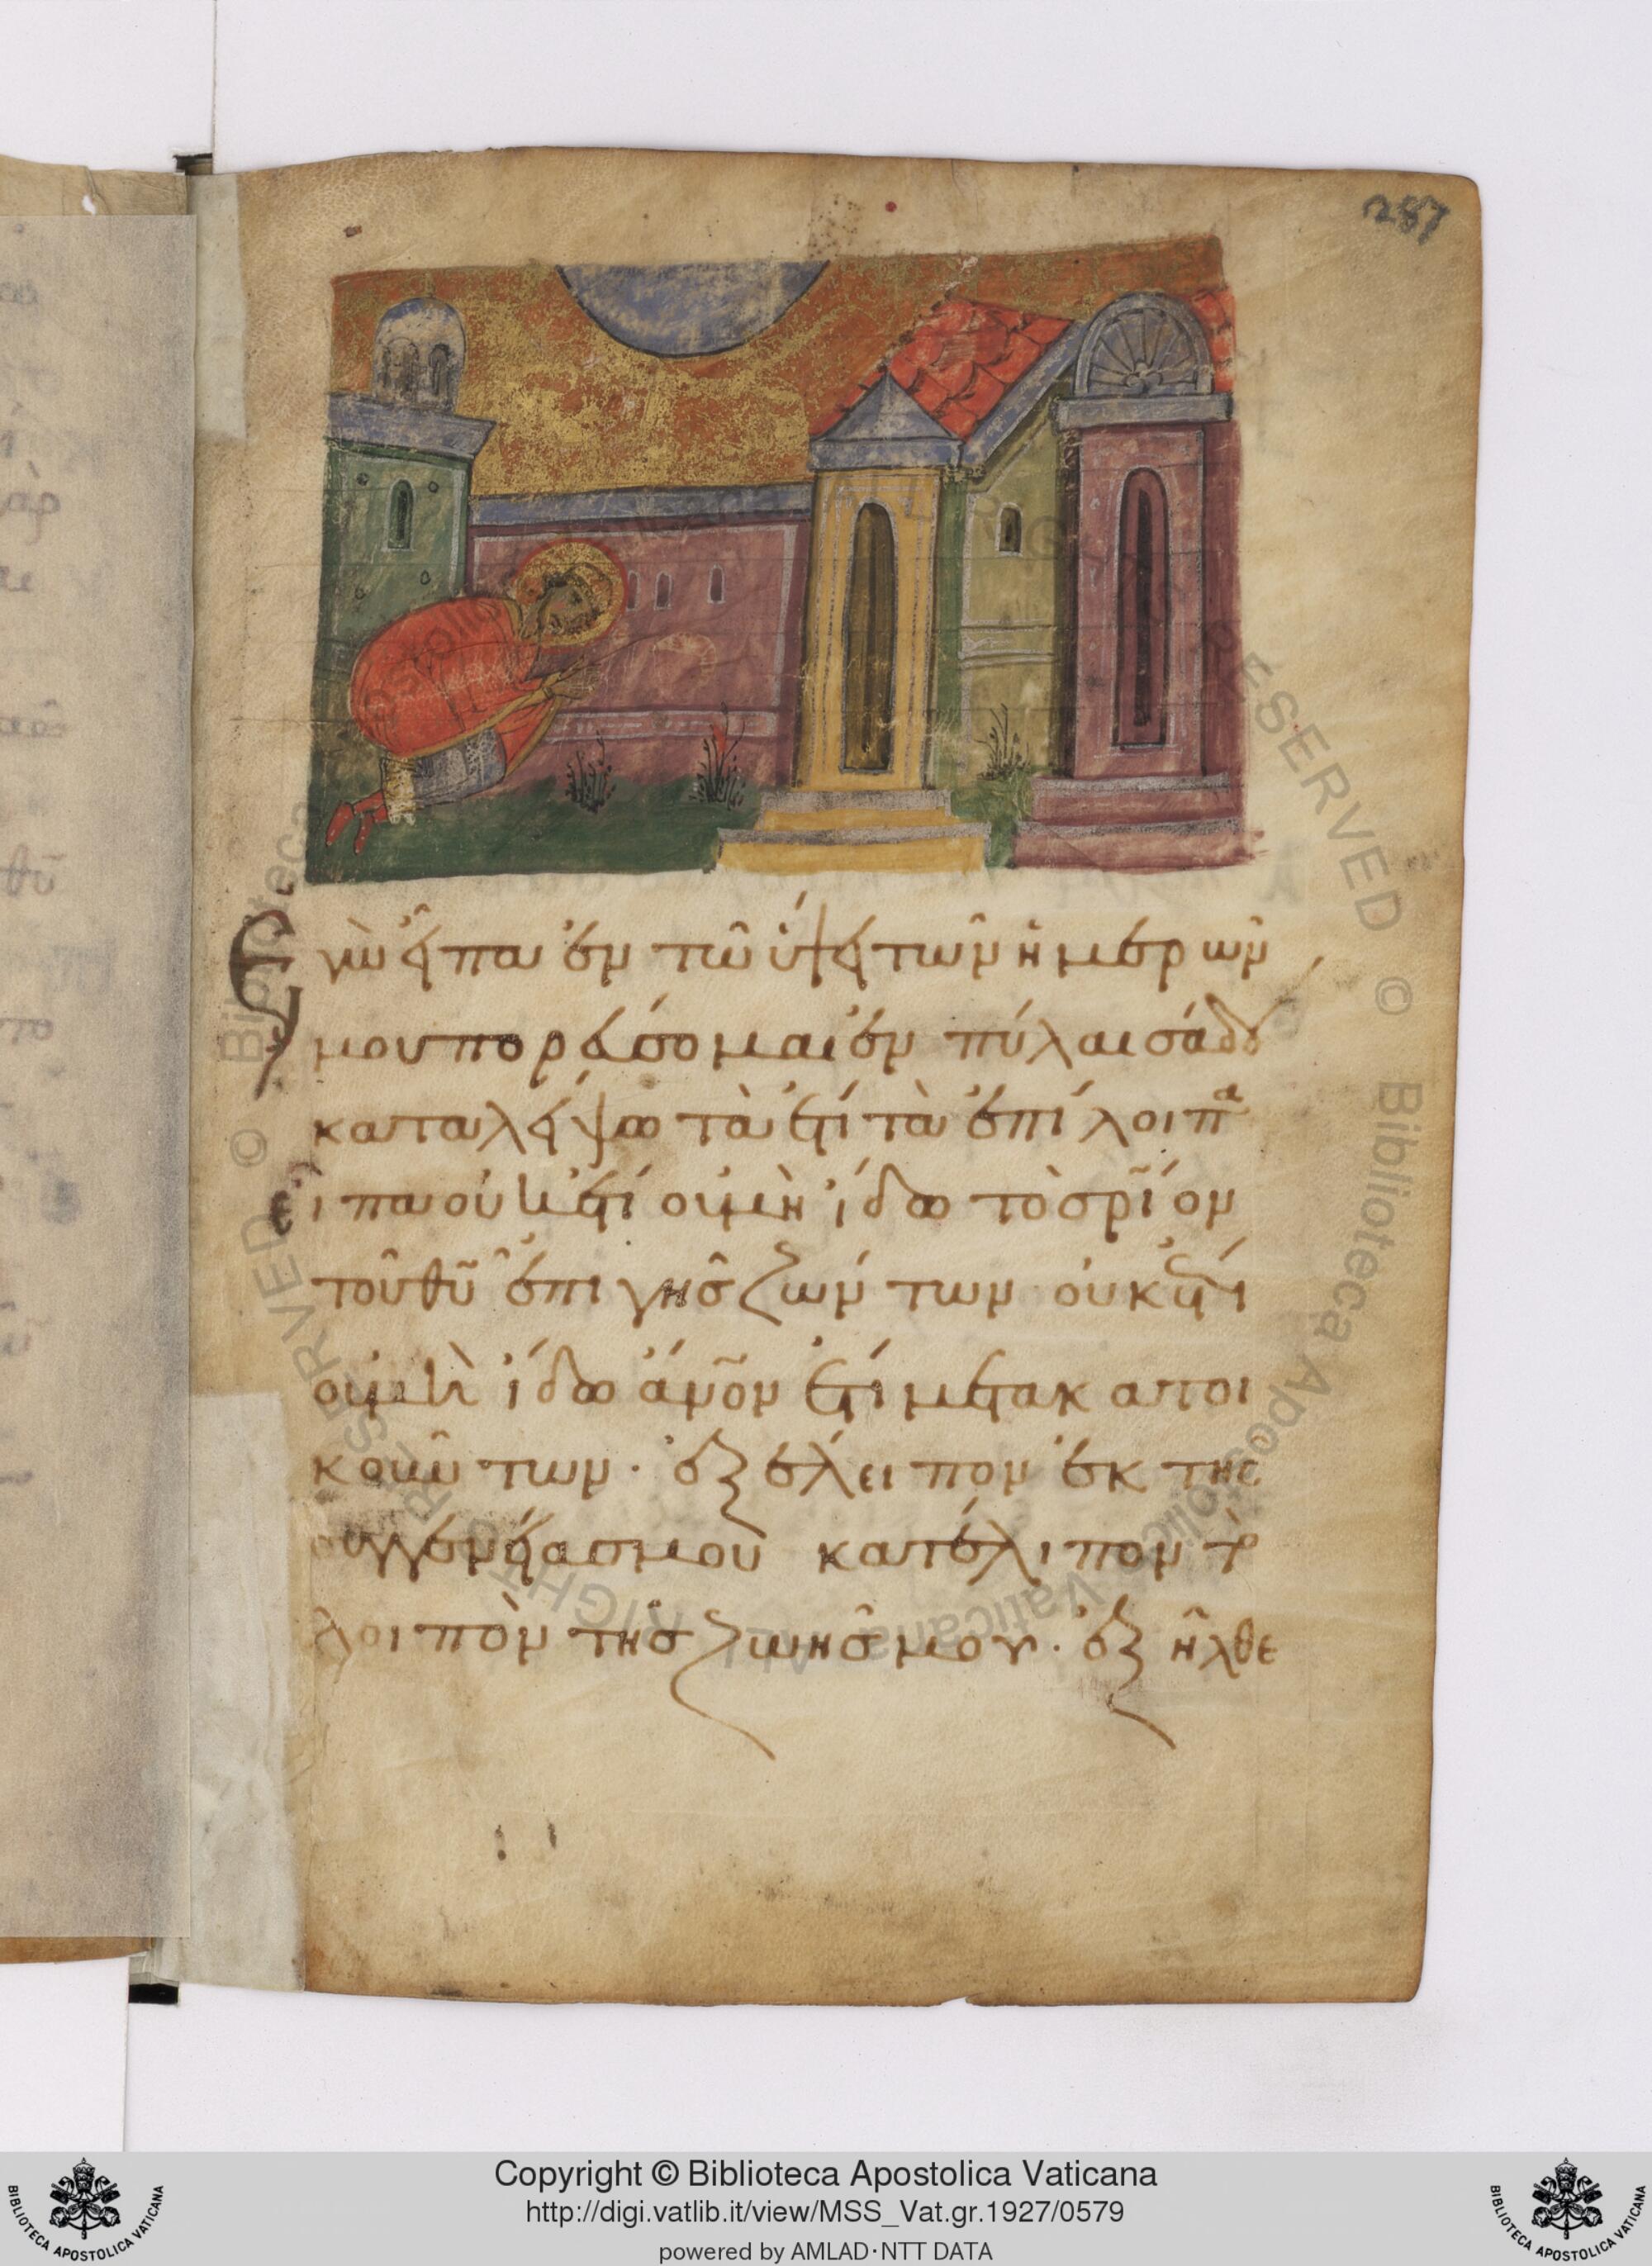 287
Ἐγὼ εἶπα ἐν τῶ ὕψει τῶν ἡμερῶν
μου πορεύσομαι ἐν πύλαις άδου
καταλείψω τὰ ἔτι τὰ ἐπίλοιπα
εἶπα οὐκέτι οὐμὴ ἴδω τὸ σρῖον
τοῦ θῦ ἐπι γῆς ζώντων· οὐκέτι
οὐμὴ ἴδω ἄνον ἔτι μετα κατοι
κούντων· ἐξέλειπον ἐκ της
συγγενείασ μου κατέλιπον τὸ
λοιπὸν τῆσ ζωῆσ μου· ἐξῆλθε
Copyright © Biblioteca Apostolica Vaticana
http://digi.vatlib.it/view/MSS_Vat.gr.1927/0579
powered by AMLAD·NTT DATA
BIBLIOTECA APOSTOLICA VATICANA
BIBLIOTECA APOSTOLICA VATICANA